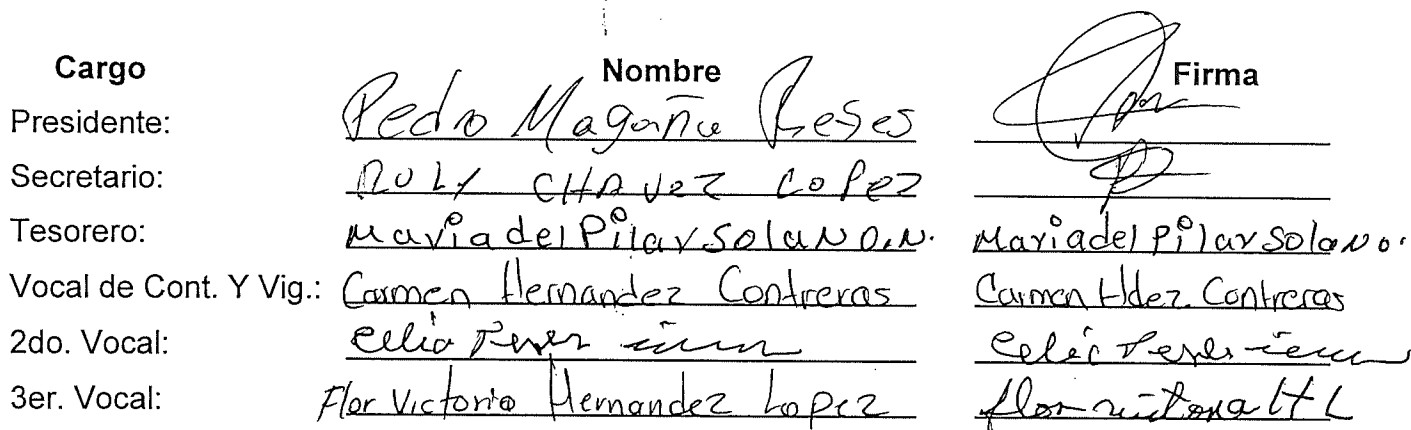 Cargo Nombre Firma
Presidente: Pedro Magaña Reses
Secretario: RULY CHAVEZ LOPEZ
Tesorero: Maria del Pilar Solano.N. Maria del Pilar Solano.
Vocal de Cont. Y Vig.: Carmen Hernandez Contreras Carmen Hdez. Contreras
2do. Vocal: Celia Perez Celia
3er. Vocal: Flor Victoria Hernandez Lopez flor victoria H L